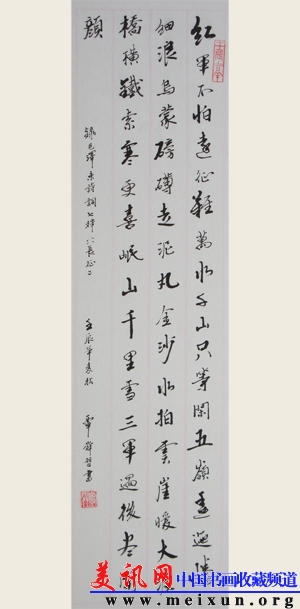 紅軍不怕遠征難萬水千山只等閑五嶺逶迤騰
細浪烏蒙磅礴走泥丸金沙水拍雲崖暖大渡
橋橫鐵索寒更喜岷山千里雪三軍過後盡開
顏
錄毛澤東詩詞七律 長征
壬辰年
書
美讯网 中国书画收藏频道
www.meixun.org